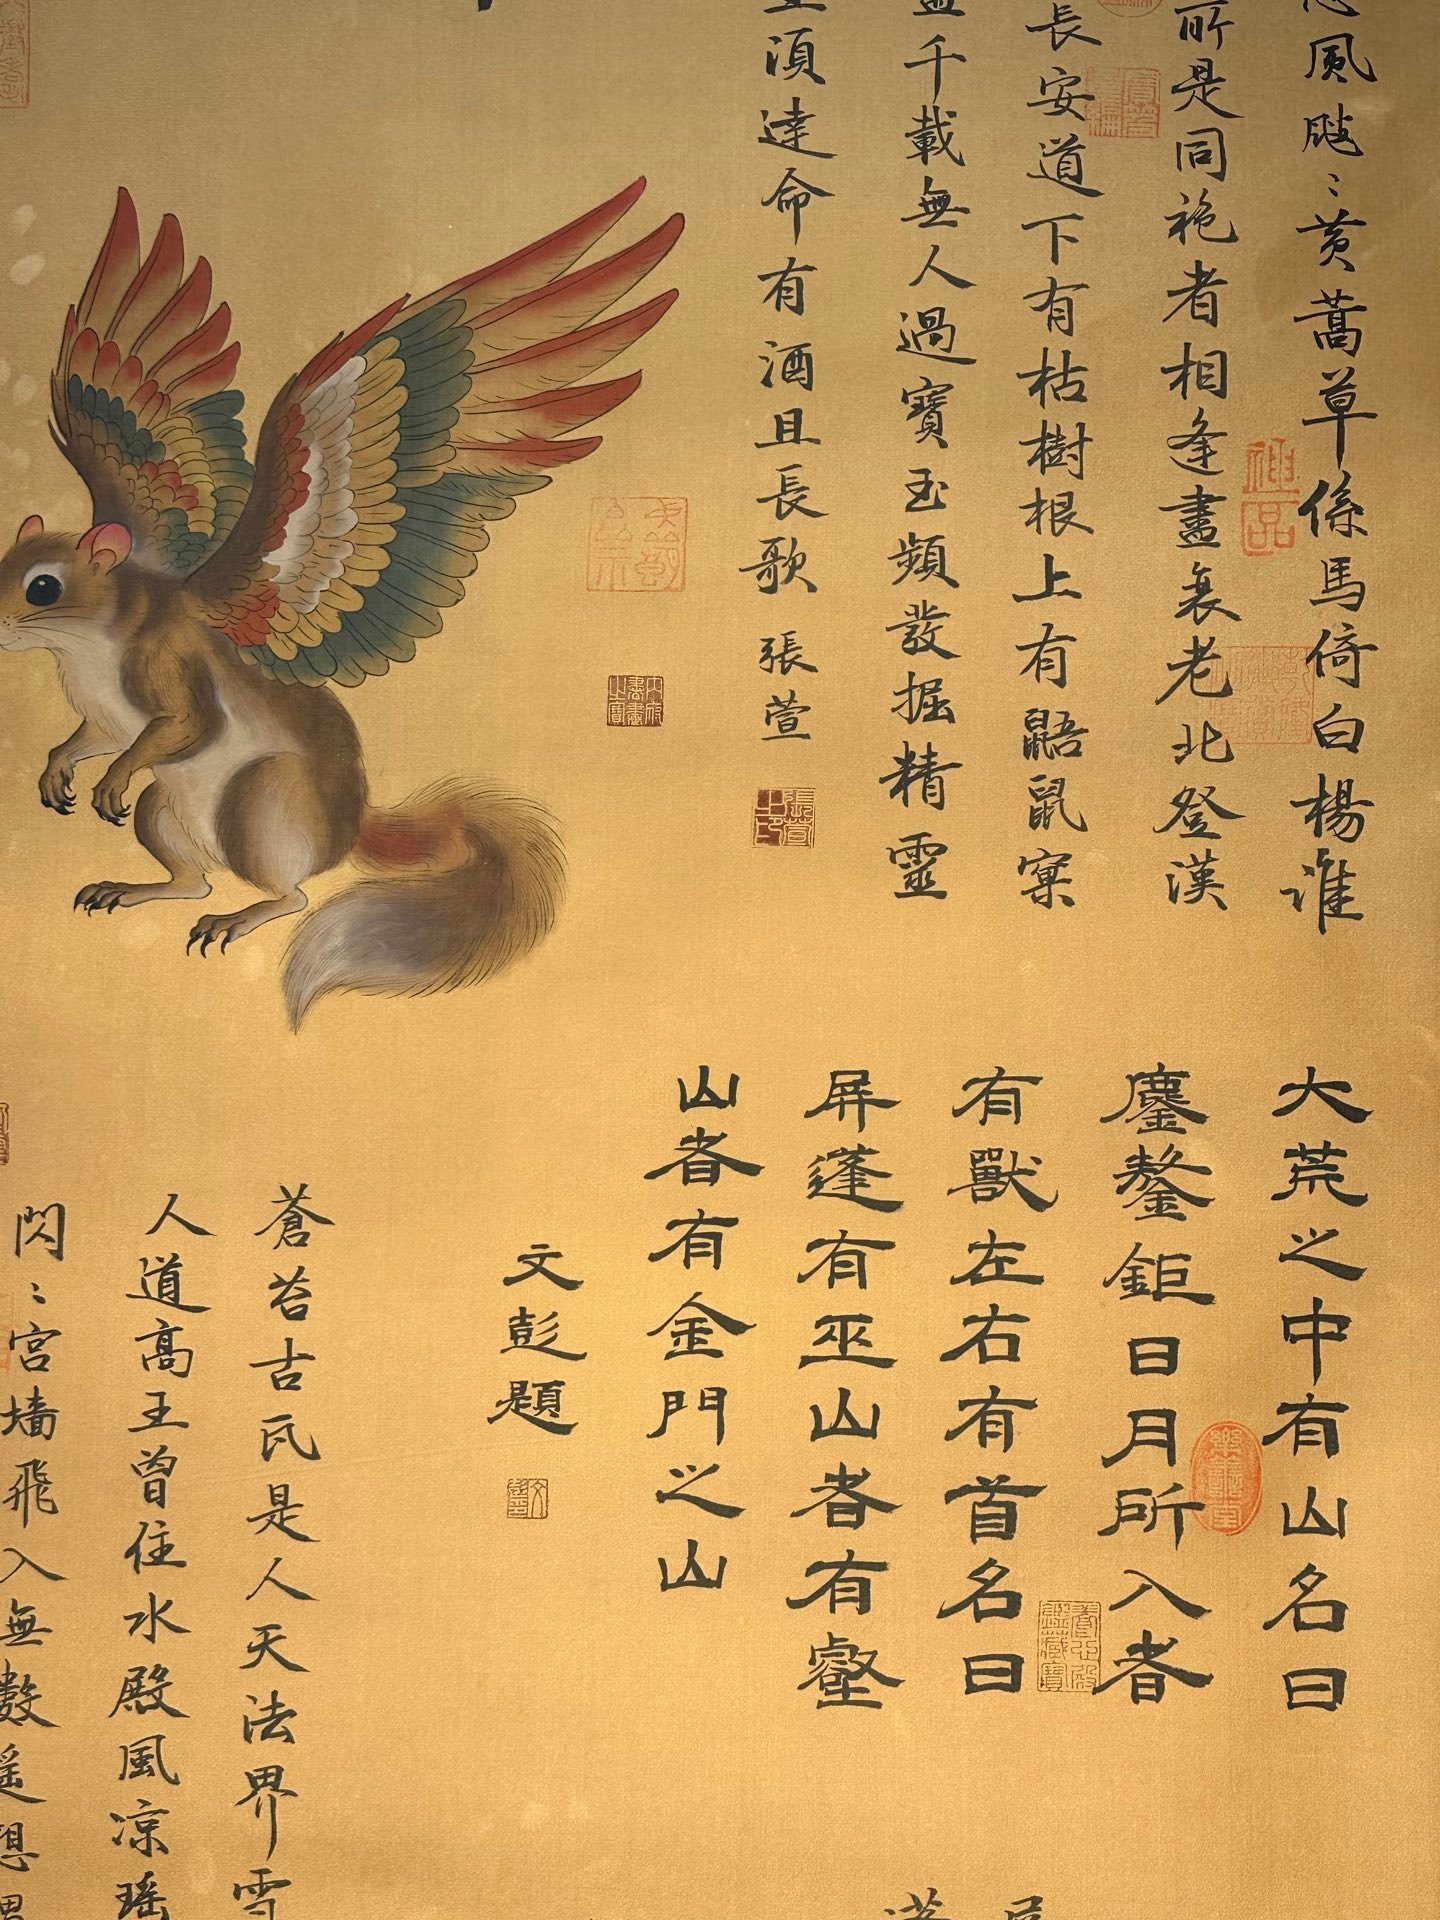 風颼〻黃蒿草係馬倚白楊誰
所是同袍者相逢盡衰老北登漢
長安道下有枯樹根上有鼯鼠窠
千載無人過寶玉頻發掘精靈
須達命有酒且長歌 張萱
張萱之印
內府書畫之寶
神品
大荒之中有山名曰
鏖鏊鉅日月所入者
有獸左右有首名曰
屏蓬有巫山者有壑
山者有金門之山
文彭題
樂善堂
養心殿鑑藏寶
蒼苔古瓦是人天法界雪
人道高王曾住水殿風凉瑤
閃〻宮墻飛入無數遥想